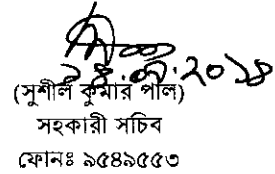 (সুশীল কুমার পাল)
সহকারী সচিব
ফোনঃ ৯৫৪৯৫৫৩